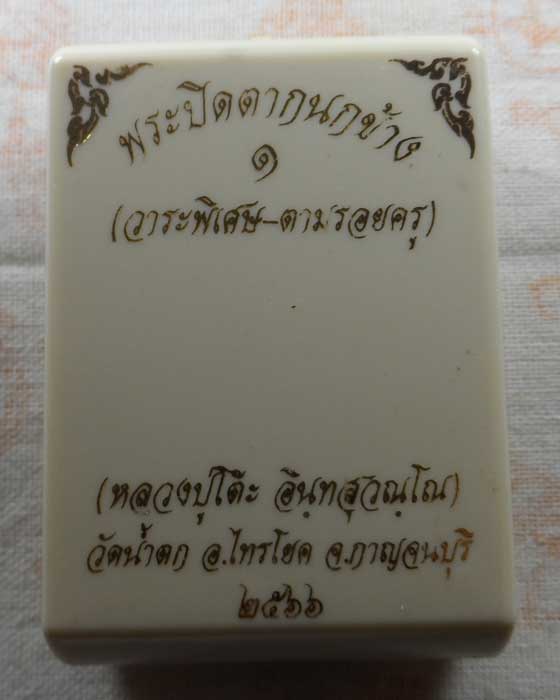 พระปิดตากนกข้าง
๑
(วาระพิเศษ-ตามรอยครู)
(หลวงปู่โต๊ะ อินฺทสุวณฺโณ)
วัดน้ำตก อ.ไทรโยค จ.กาญจนบุรี
๒๕๖๖